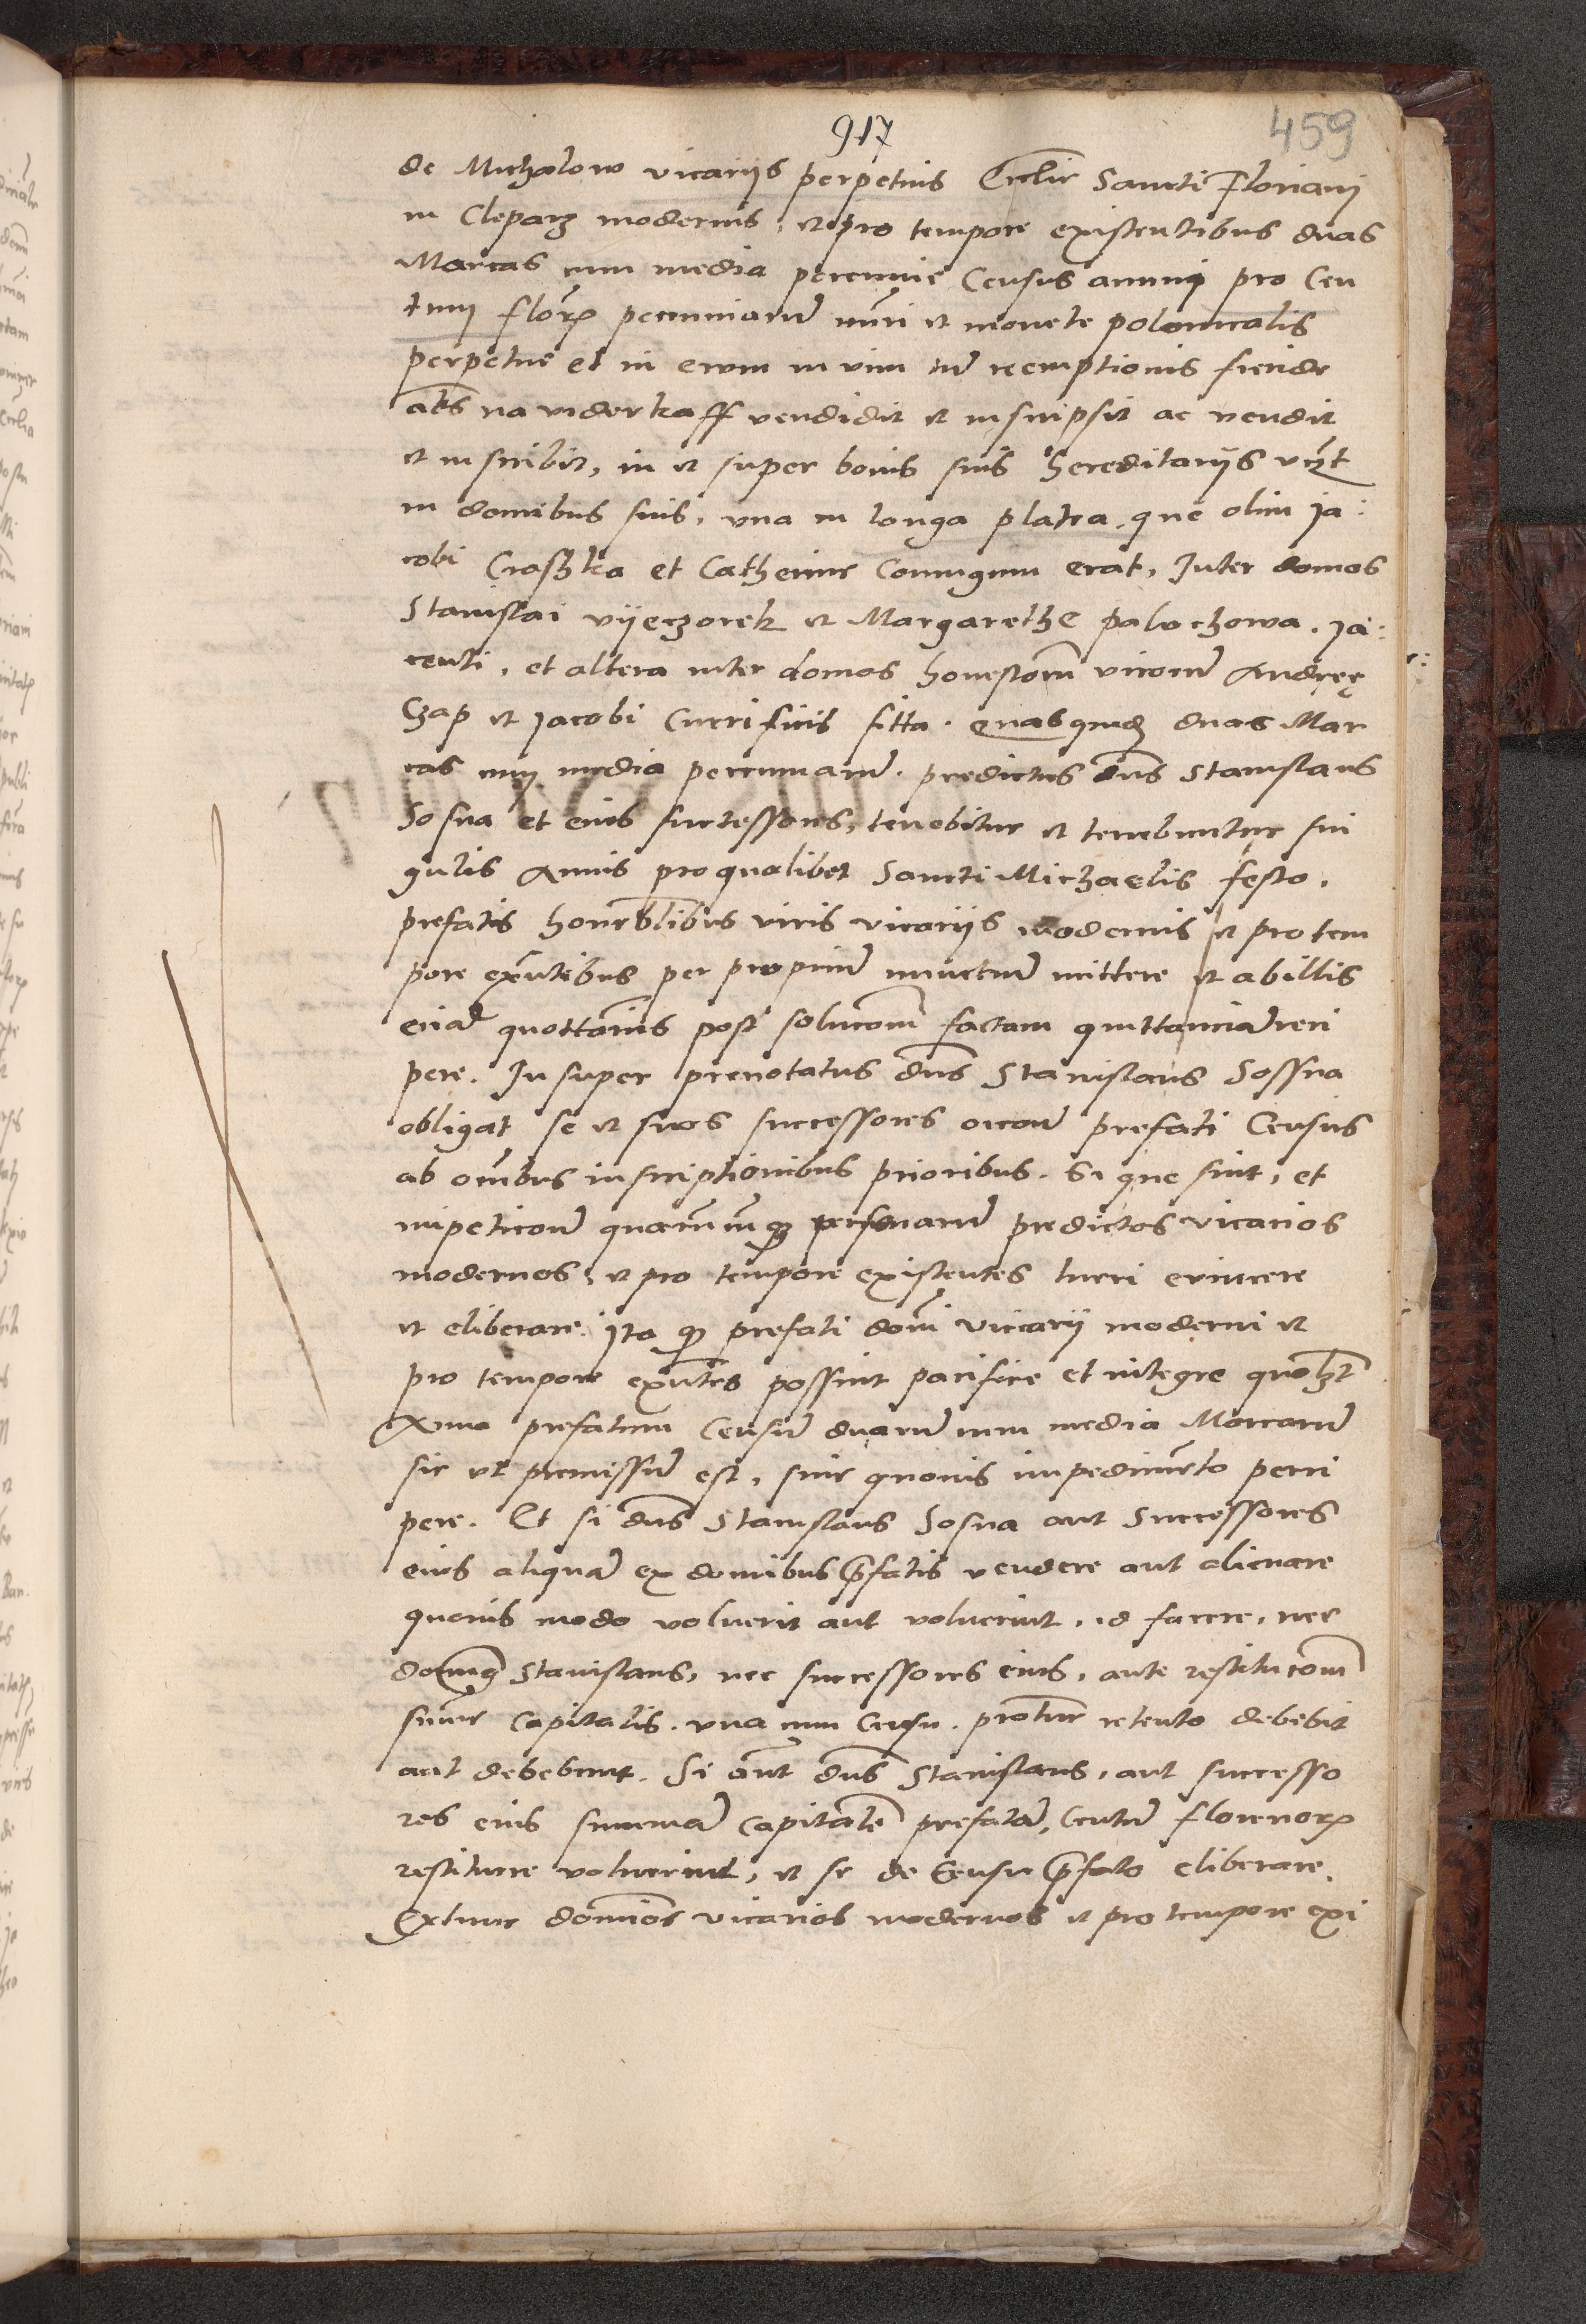 917
459
de Michalow vicariis perpetuis Ecclie Sancti Floriani
in Cleparz modernis, et pro tempore existentibus duas
Marcas cum media pecunie Census annui pro Cen
tum florꝫ pecuniarũ nũri et monete polonicalis
perpetue et in evum in vim tñ reemptionis fiende
als na viderkaff vendidit et inscripsit ac vendit
et inscribit, in et super bonis suis hereditariis vꝫt
in domibus suis, vna in longa platea, que olim ja:
cobi Craszka et Catherine Coniugum erat, Inter domos
Stanislai vijeczorek et Margarethe palochowa. ja:
centi, et altera inter domos honestorũ virorũ Andreę
Czap et jacobi Currificis sitta. quasquidẽ duas Mar
cas cum media pecuniarũ. predictus dñs Stanislaus
Sosna et eius successores, tenebitur et tenebuntur sin
gulis Annis pro qualibet Sancti Michaelis festo,
prefatis honorblibus viris vicariis modernis et pro tem
pore exñtibus per propriũ nunctiũ mittere et ab illis
eciã quottannis post solucoñ factam quittanciã reci
pere. Insuper prenotatus dñs Stanislaus Sossna
obligat se et suos successores oicoñ prefati Census
ab oñibus inscriptionibus prioribus. Si que sint, et
impeticoñ quarũcumqꝫ personarũ predictos vicarios
modernos, et pro tempore existentes tueri evincere
et eliberare. jta qꝫ prefati doñi viccarii moderni et
pro tempore exñtes possint pacifice et integre quolꝫt
Anno prefatum Censũ duarũ cum media Marcarũ
sic ut premissũ est, sine quovis impedimẽto perci
pere. Et si dñs Stanislaus Sosna aut Successores
eius aliquã ex domibus pfatis vendere aut alienare
quovis modo voluerit aut voluerint, id facere, nec
Stanislaus, nec successores eius, ante restitucoñ
sũme Capitalis. vna cum Censu. retento debebit
aut debebunt. Si aũt dñs Stanislaus, aut successo
res eius summã Capitalẽ prefatã, Centũ florenorꝫ
restituere voluerint, et se de Censu pfato eliberare.
Extunc dominos vicarios modernos et pro tempore exi